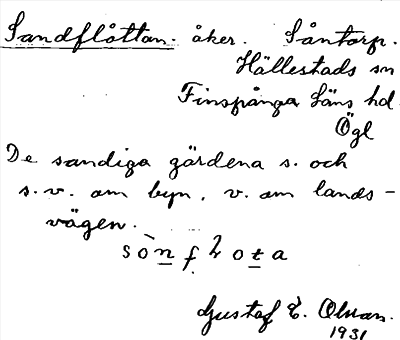 Sandflåttan. åker. Såntorp.
Hällestads sn
Finspånga läns hd.
Ögl
De sandiga gärdena s. och
s.v. om byn, v. om lands-
vägen.
Gustaf E. Olsson.
1931